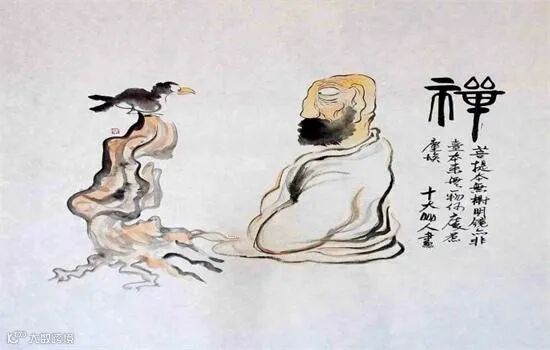 禪
菩提本無樹明镜亦非
臺本来無一物何處惹
塵埃
十大山人畫